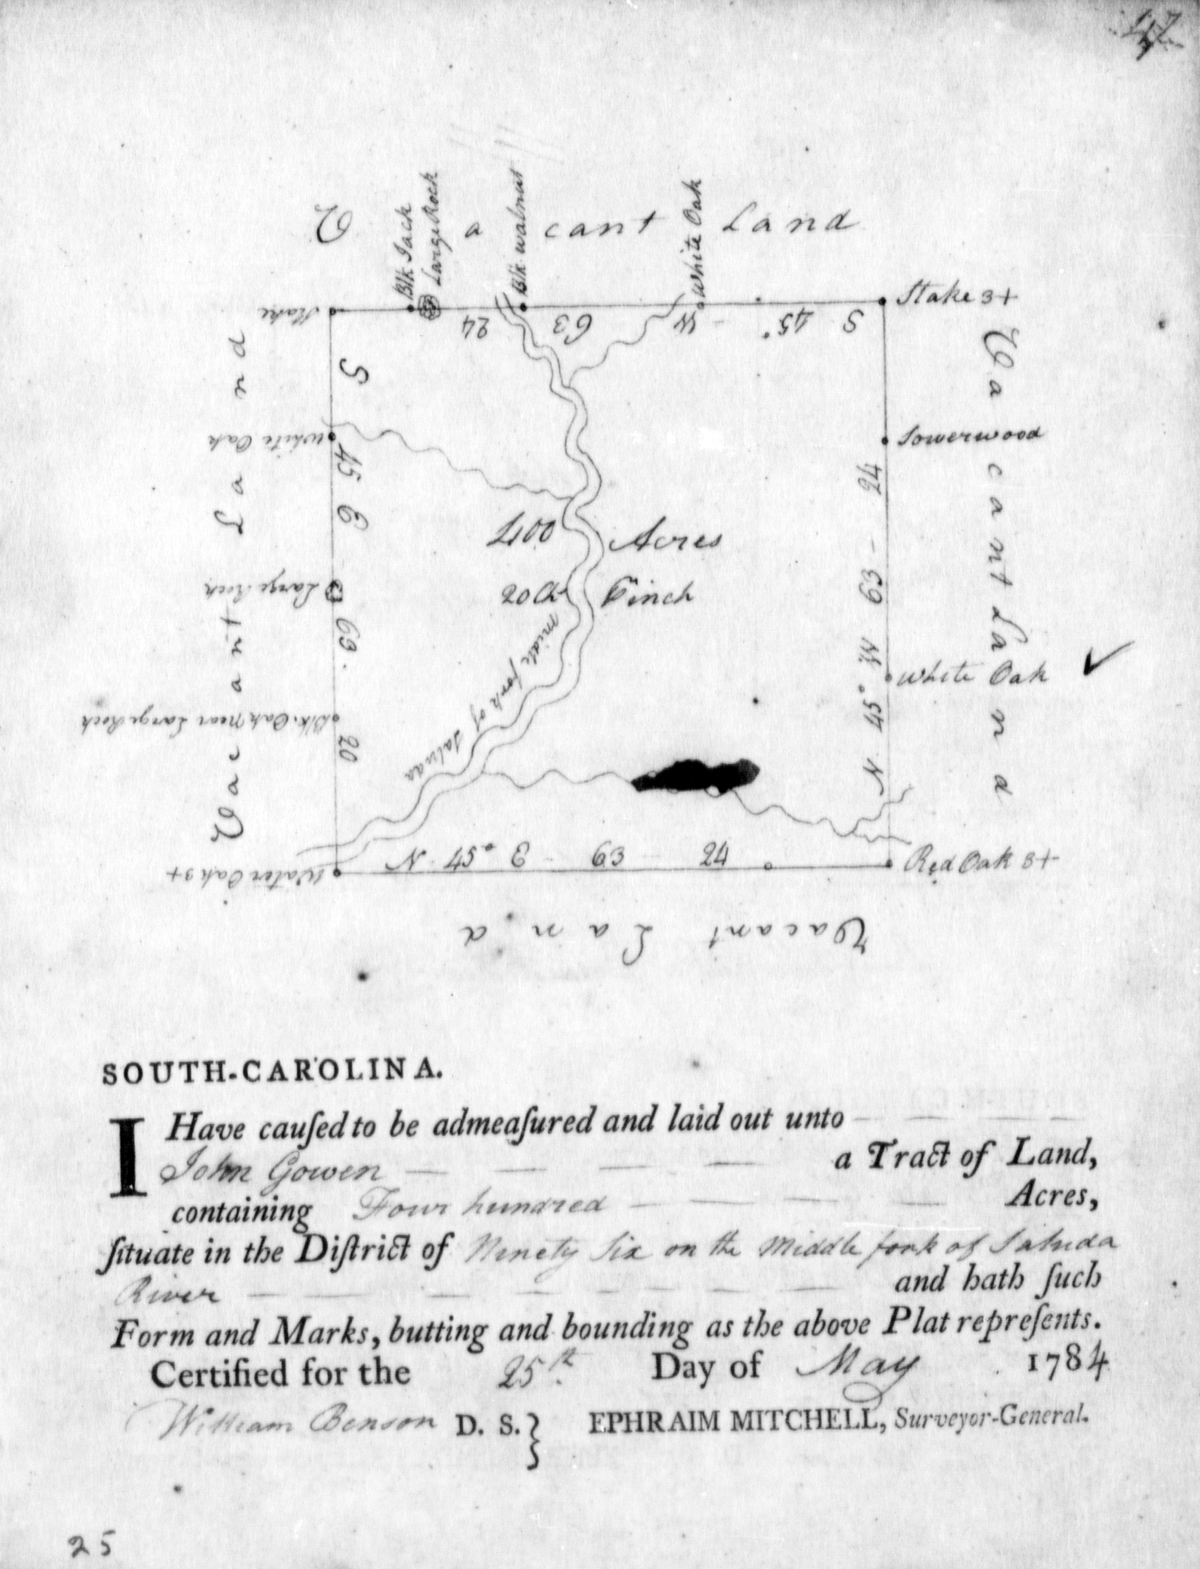 47
V a cant Land
Blk Jack
Large Rock
Blk walnut
White Oak
Stake
24 63 W - 45° S
Stake 3+
Vacant Land
White Oak
Large Rock
Blk. Oak near Large Rock
Water Oak 3+
S 45 E 63. 20
400 Acres
20 Ch Pinch
Midle fork of Saluda
Sowerwood
White Oak
N 45° W 63 - 24
Vacant Land
N. 45° E 63 24
Red Oak 3+
Vacant Land
SOUTH-CAROLINA.
I Have cauſed to be admeaſured and laid out unto
John Gowen a Tract of Land,
containing Four hundred Acres,
ſituate in the Diſtrict of Ninety Six on the Middle fork of Saluda
River and hath ſuch
Form and Marks, butting and bounding as the above Plat repreſents.
Certified for the 25th. Day of May 1784
William Benson D. S. } EPHRAIM MITCHELL, Surveyor-General.
25